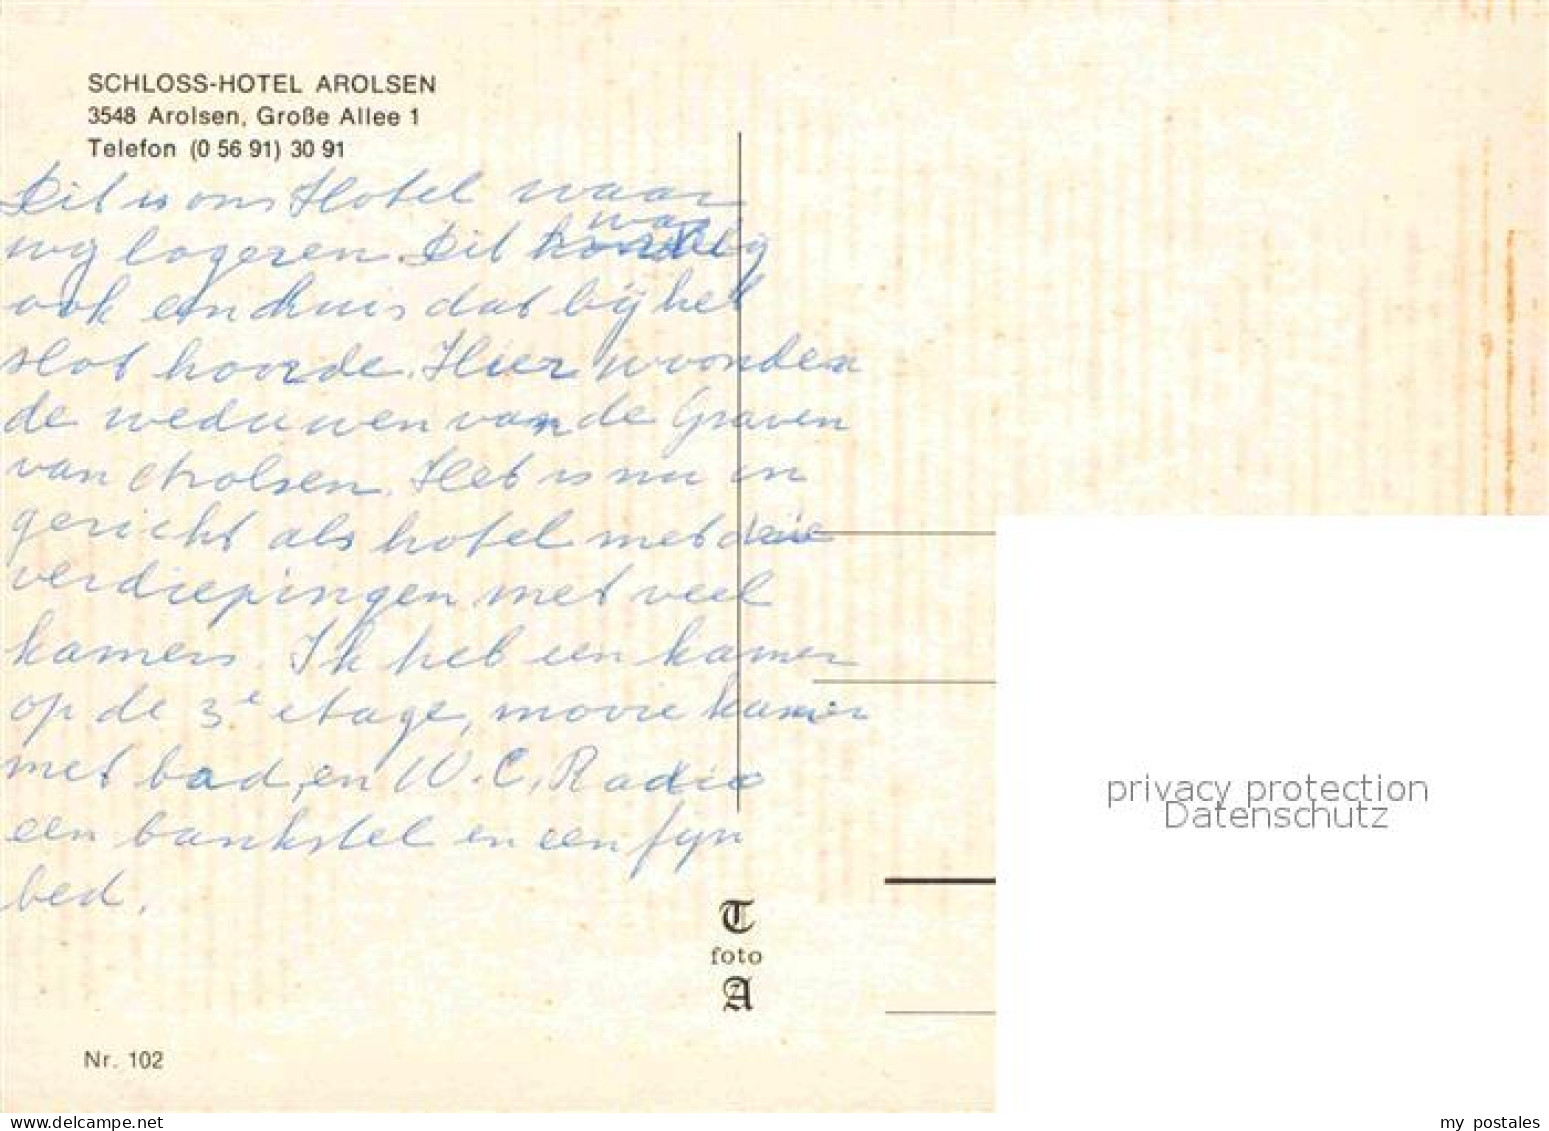 SCHLOSS-HOTEL AROLSEN
3548 Arolsen, Große Allee 1
Telefon (0 56 91) 30 91
Dit is ons Hotel waar
wy logeren. Dit was
ook een huis dat bij het
slot hoorde. Hier woonden
de weduwen van de Graven
van Arolsen. Het is nu in
gericht als hotel met drie
verdiepingen met veel
kamers. Ik heb een kamer
op de 3e etage, mooie kamer
met bad, en W.C, Radio
een bankstel en een fyn
bed.
T
foto
A
Nr. 102
privacy protection
Datenschutz
delcampe.net
my postales